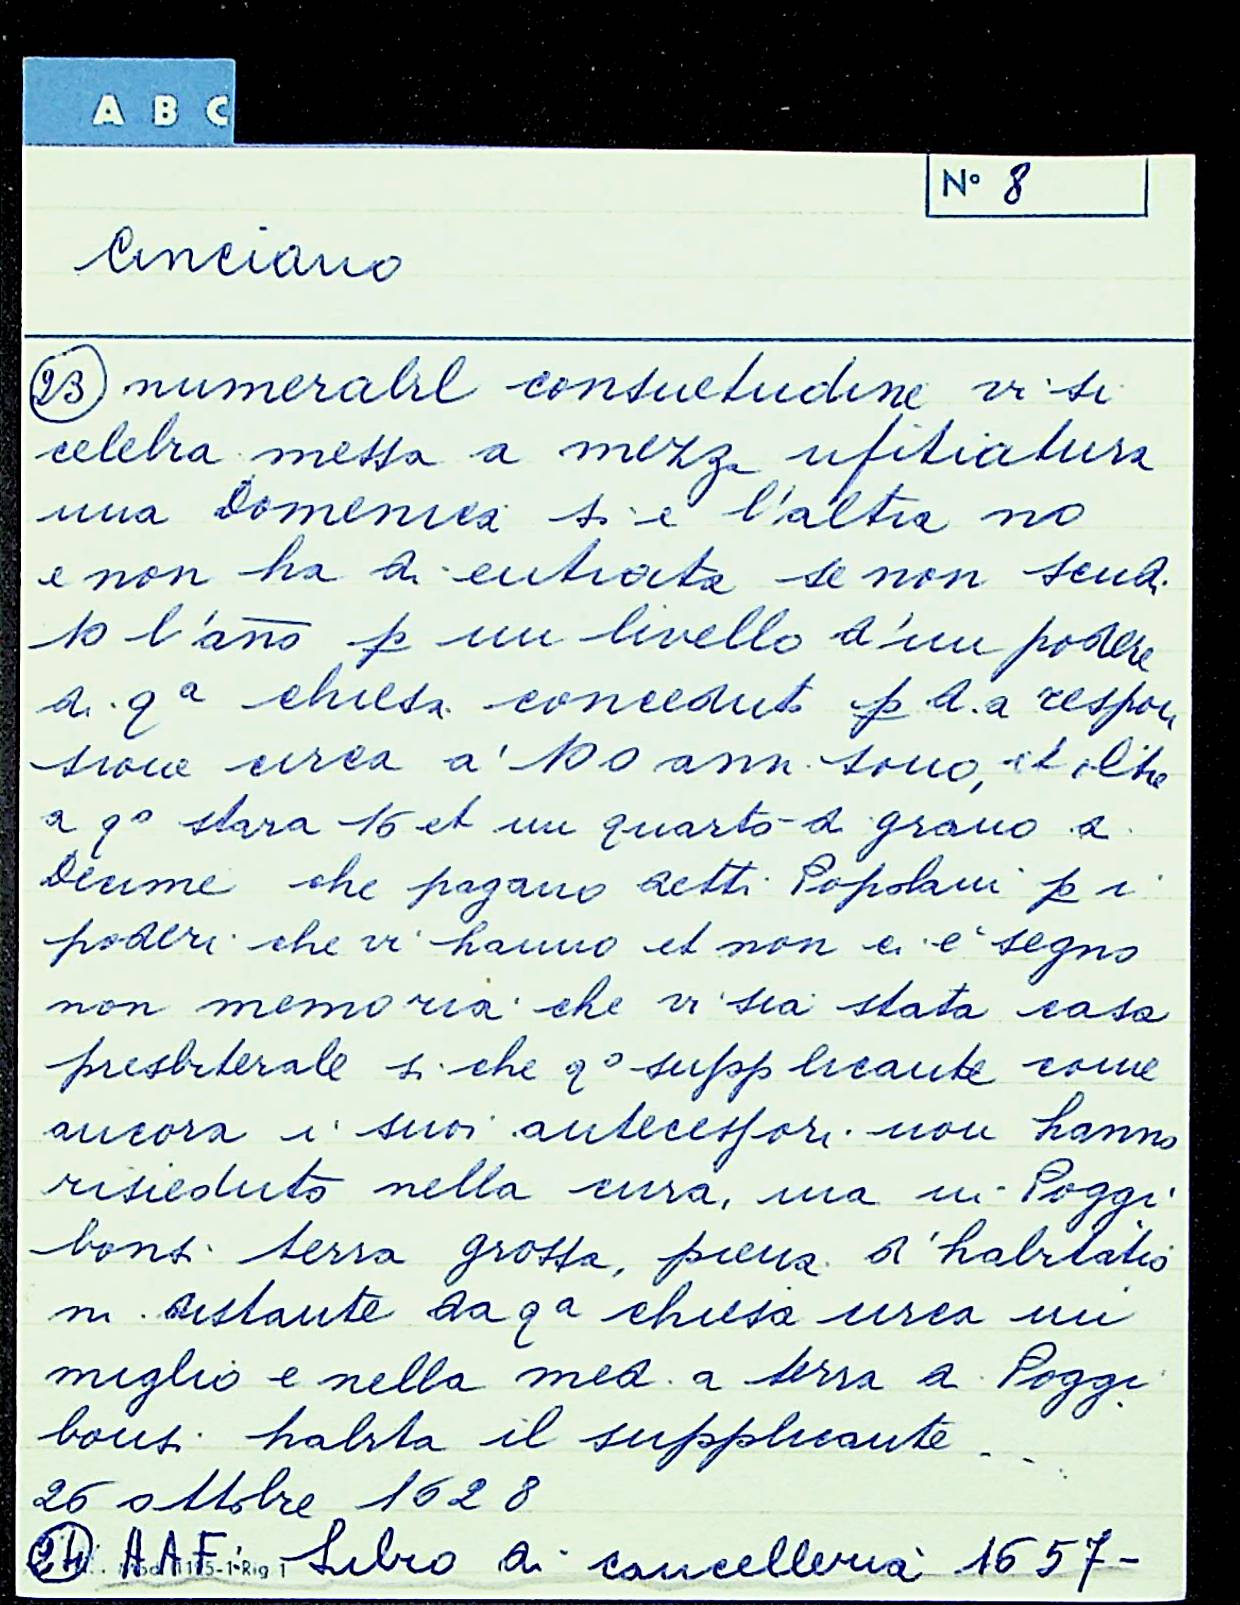 A B C
N° 8
Cinciano
23 numerabil consuetudine vi si
celebra messa a mezza ufitiatura
una Domenica si e l'altra no
e non ha di entrata se non scudi
10 l'año p un livello d'un podere
di qª chiesa conceduto p d.a respon
sione circa a' 100 anni sono, et oltre
a qº stara 16 et un quarto di grano di
Decime che pagano detti Popolani p i
poderi che vi hanno et non ci e' segno
non memoria che vi sia stata casa
presbiterale si che qº supplicante come
ancora i suoi antecessori non hanno
risieduto nella cura, ma in Poggi
bonsi terra grossa, piena d'habitatio
ni distante da qª chiesa circa un
miglio e nella med.a terra di Poggi
bonsi habita il supplicante ...
26 ottobre 1628
24 AAF. Libro di cancelleria 1657-